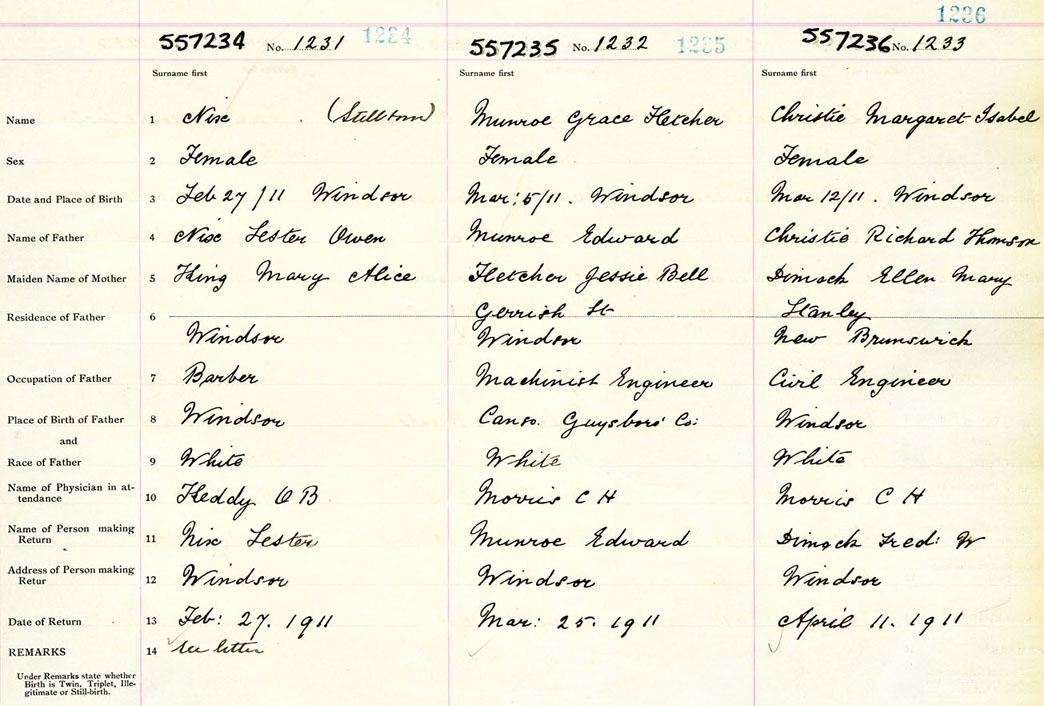 1236
557234 No. 1231 1234 557235 No. 1232 1235 557236 No. 1233
Surname first Surname first Surname first
Name 1 Nix (Stillborn) Munroe Grace Fletcher Christie Margaret Isabel
Sex 2 Female Female Female
Date and Place of Birth 3 Feb 27/11 Windsor Mar: 5/11. Windsor Mar 12/11. Windsor
Name of Father 4 Nix Lester Owen Munroe Edward Christie Richard Thomson
Maiden Name of Mother 5 King Mary Alice Fletcher Jessie Bell Dimock Ellen Mary
Residence of Father 6 Gerrish St Stanley
Windsor Windsor New Brunswick
Occupation of Father 7 Barber Machinist Engineer Civil Engineer
Place of Birth of Father 8 Windsor Canso. Guysboro' Co: Windsor
and
Race of Father 9 White White White
Name of Physician in at-
tendance 10 Keddy O B Morris C H Morris C H
Name of Person making
Return 11 Nix Lester Munroe Edward Dimock Fred: W
Address of Person making
Retur 12 Windsor Windsor Windsor
Date of Return 13 Feb: 27. 1911 Mar: 25. 1911 April 11. 1911
REMARKS 14 see letter
Under Remarks state whether
Birth is Twin, Triplet, Ille-
gitimate or Still-birth.